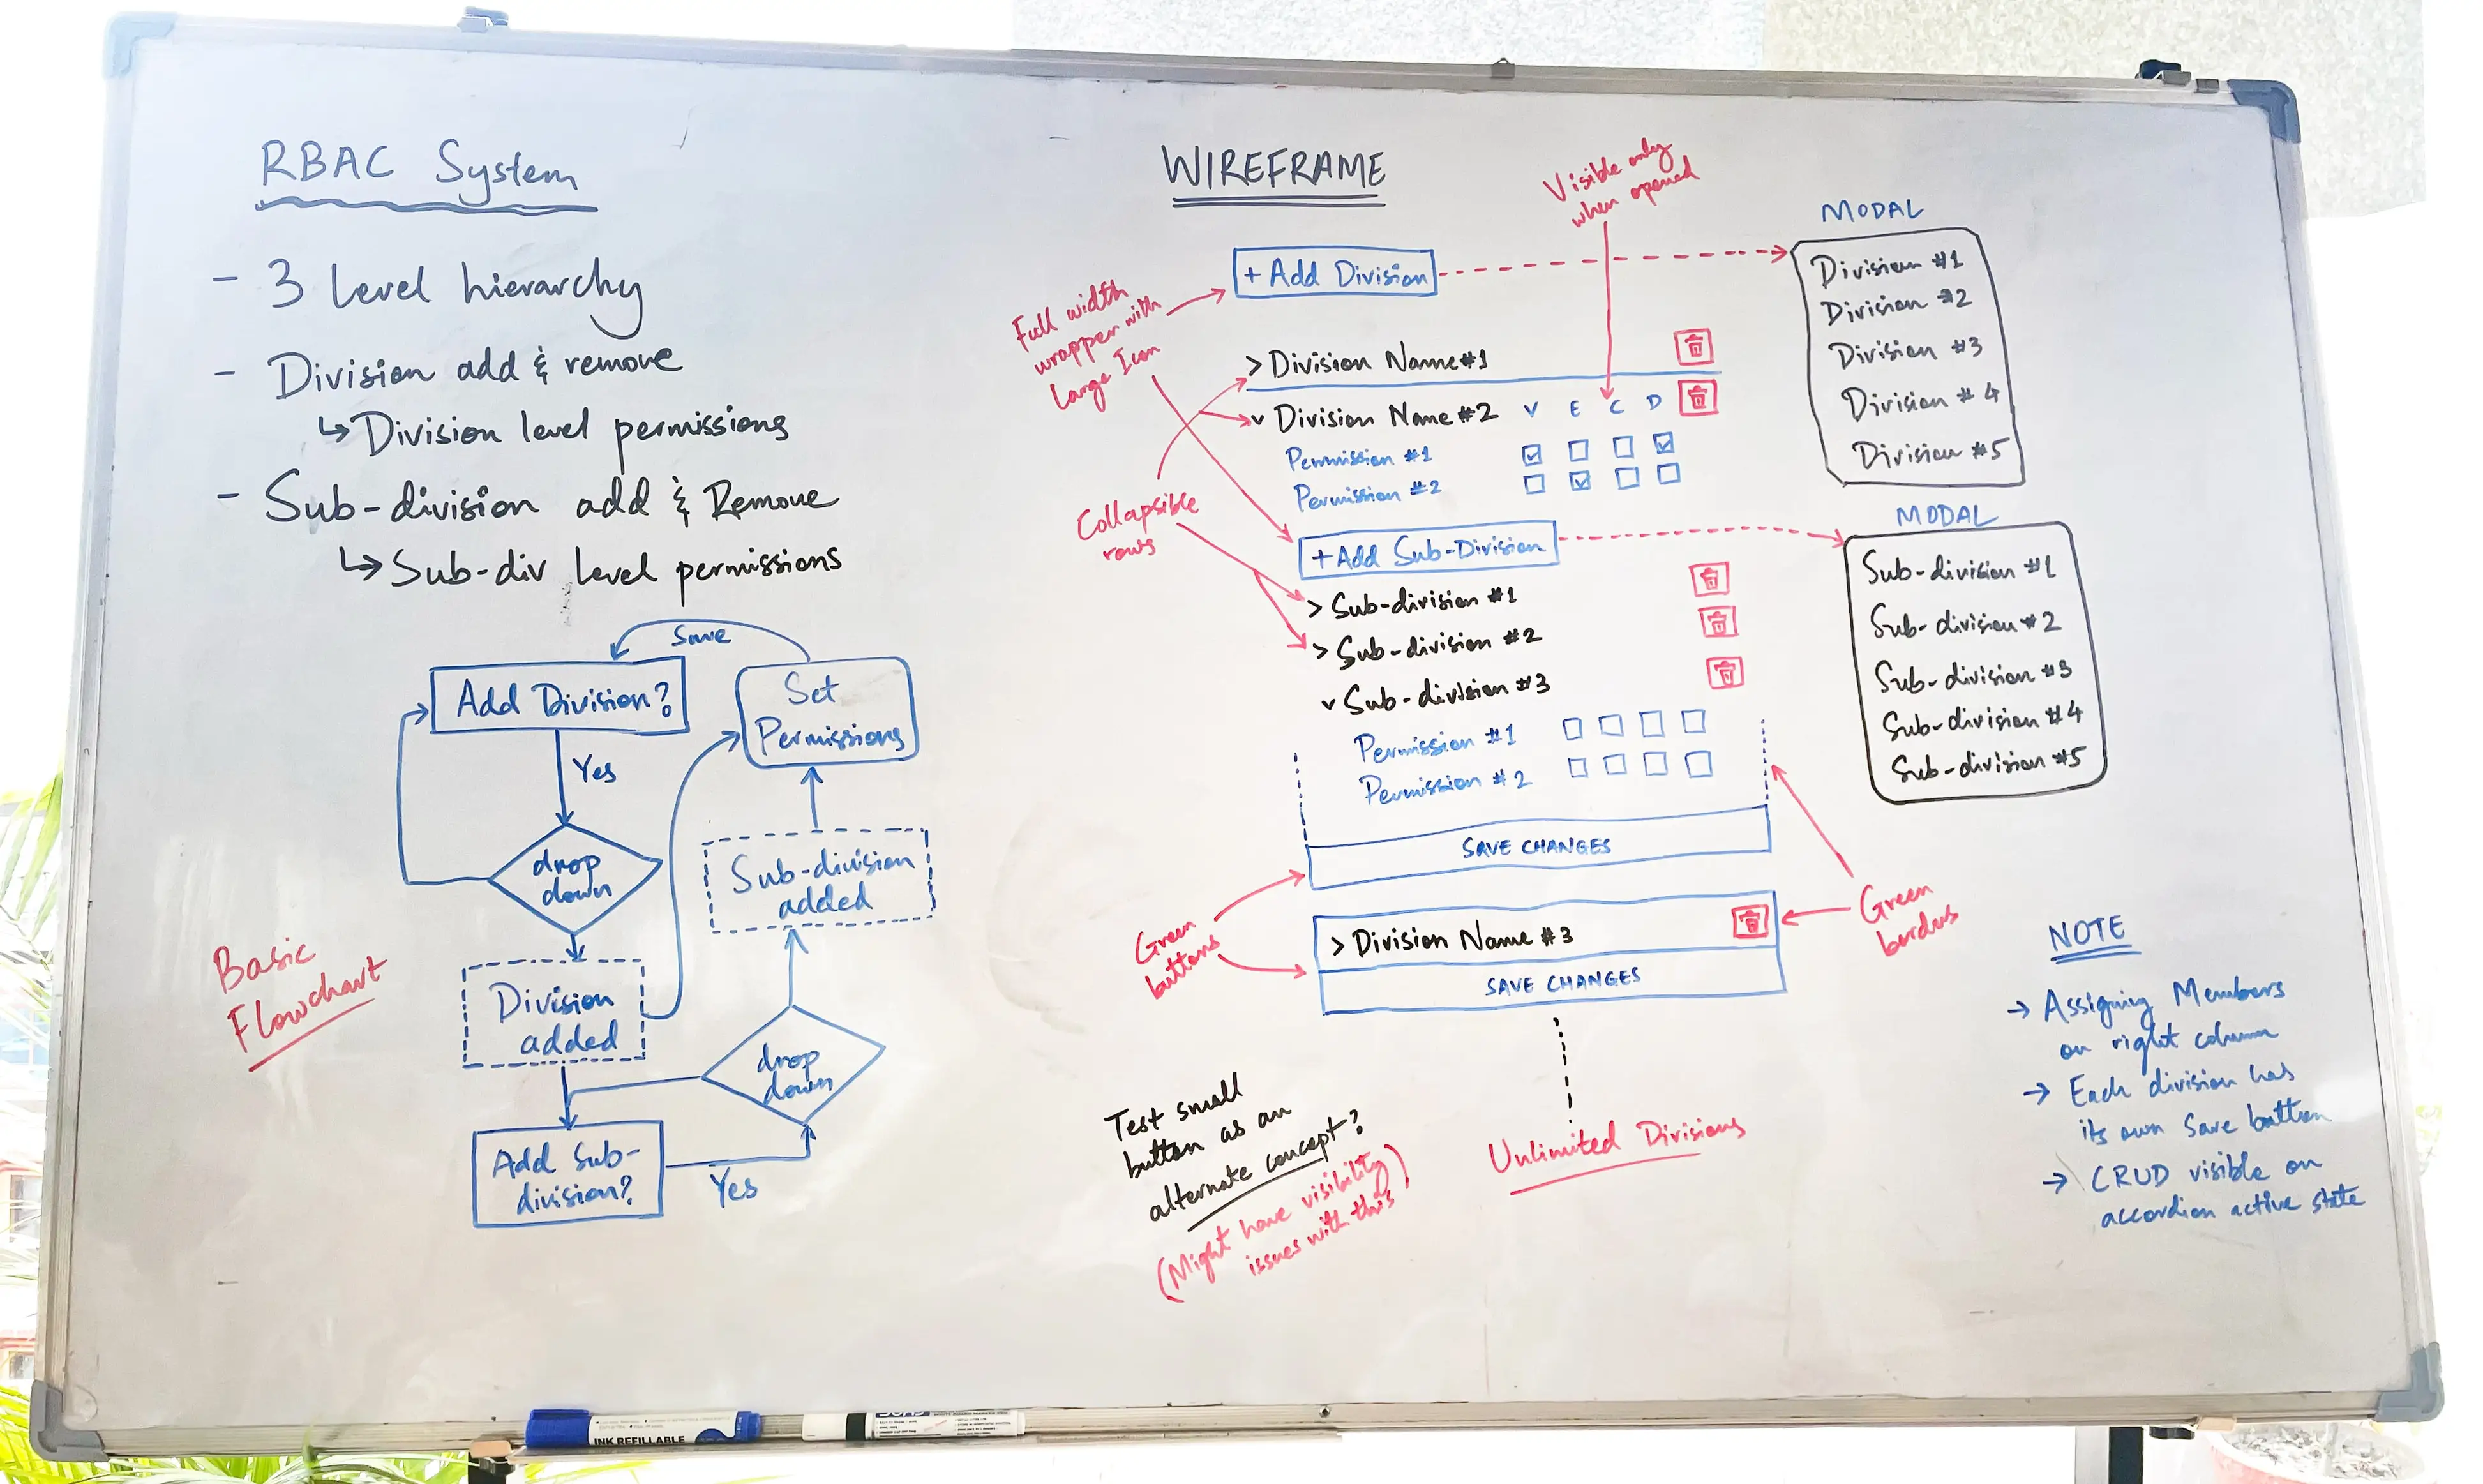 RBAC System
- 3 Level hierarchy
- Division add & remove
↳ Division level permissions
- Sub-division add & Remove
↳ Sub-div level permissions
Save
Add Division?
Set
Permissions
Yes
drop
down
Sub-division
added
Basic
Flowchart
Division
added
drop
down
Add Sub-
division?
Yes
WIREFRAME
Visible only
when opened
Full width
wrapper with
Large Icon
+ Add Division
> Division Name #1
v Division Name #2 V E C D
Permission #1
Permission #2
Collapsible
rows
+ Add Sub-Division
> Sub-division #1
> Sub-division #2
v Sub-division #3
Permission #1
Permission #2
SAVE CHANGES
Green
buttons
Green
borders
> Division Name #3
SAVE CHANGES
Unlimited Divisions
Test small
button as an
alternate concept?
(Might have visibility
issues with this)
MODAL
Division #1
Division #2
Division #3
Division #4
Division #5
MODAL
Sub-division #1
Sub-division #2
Sub-division #3
Sub-division #4
Sub-division #5
NOTE
→ Assigning Members
on right column
→ Each division has
its own Save button
→ CRUD visible on
accordion active state
INK REFILLABLE